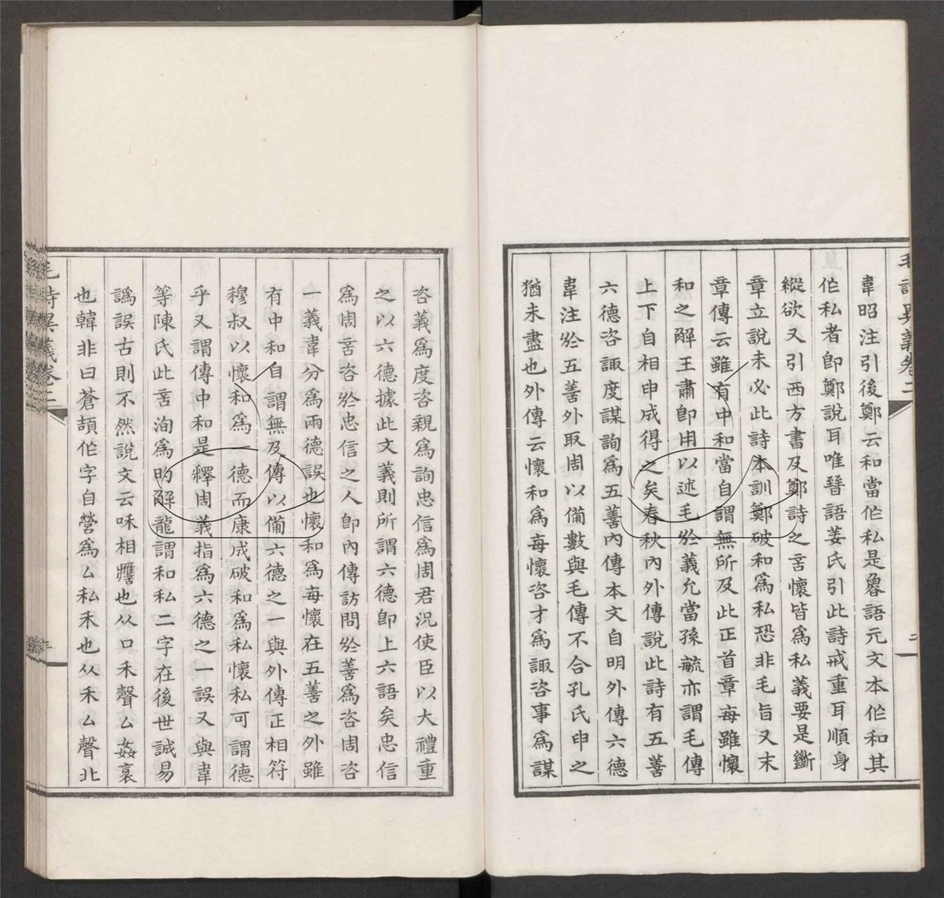 韋昭注引後鄭云和當作私是魯語元文本作和其
作私者卽鄭說耳唯晉語姜氏引此詩戒重耳順身
縱欲又引西方書及鄭詩之言懷皆爲私義要是斷
章立說未必此詩本訓鄭破和爲私恐非毛旨又末
章傳云雖有中和當自謂無所及此正首章每雖懷
和之解王肅卽用以述毛於義允當孫毓亦謂毛傳
上下自相申成得之矣春秋內外傳說此詩有五善
六德咨諏度謀詢爲五善內傳本文自明外傳六德
韋注於五善外取周以備數與毛傳不合孔氏申之
猶未盡也外傳云懷和爲每懷咨才爲諏咨事爲謀
咨義爲度咨親爲詢忠信爲周君況使臣以大禮重
之以六德據此文義則所謂六德卽上六語矣忠信
爲周言咨於忠信之人卽內傳訪問於善爲咨周咨
一義韋分爲兩德誤也懷和爲每懷在五善之外雖
有中和自謂無及傳以備六德之一與外傳正相符
穆叔以懷和爲一德而康成破和爲私懷私可謂德
乎又謂傳中和是釋周義指爲六德之一誤又與韋
等陳氏此言洵爲昀解龍謂和私二字在後世誠易
譌誤古則不然說文云咊相譍也从口禾聲厶姦衺
也韓非曰蒼頡作字自營爲厶私禾也从禾厶聲北
毛詩異義卷二